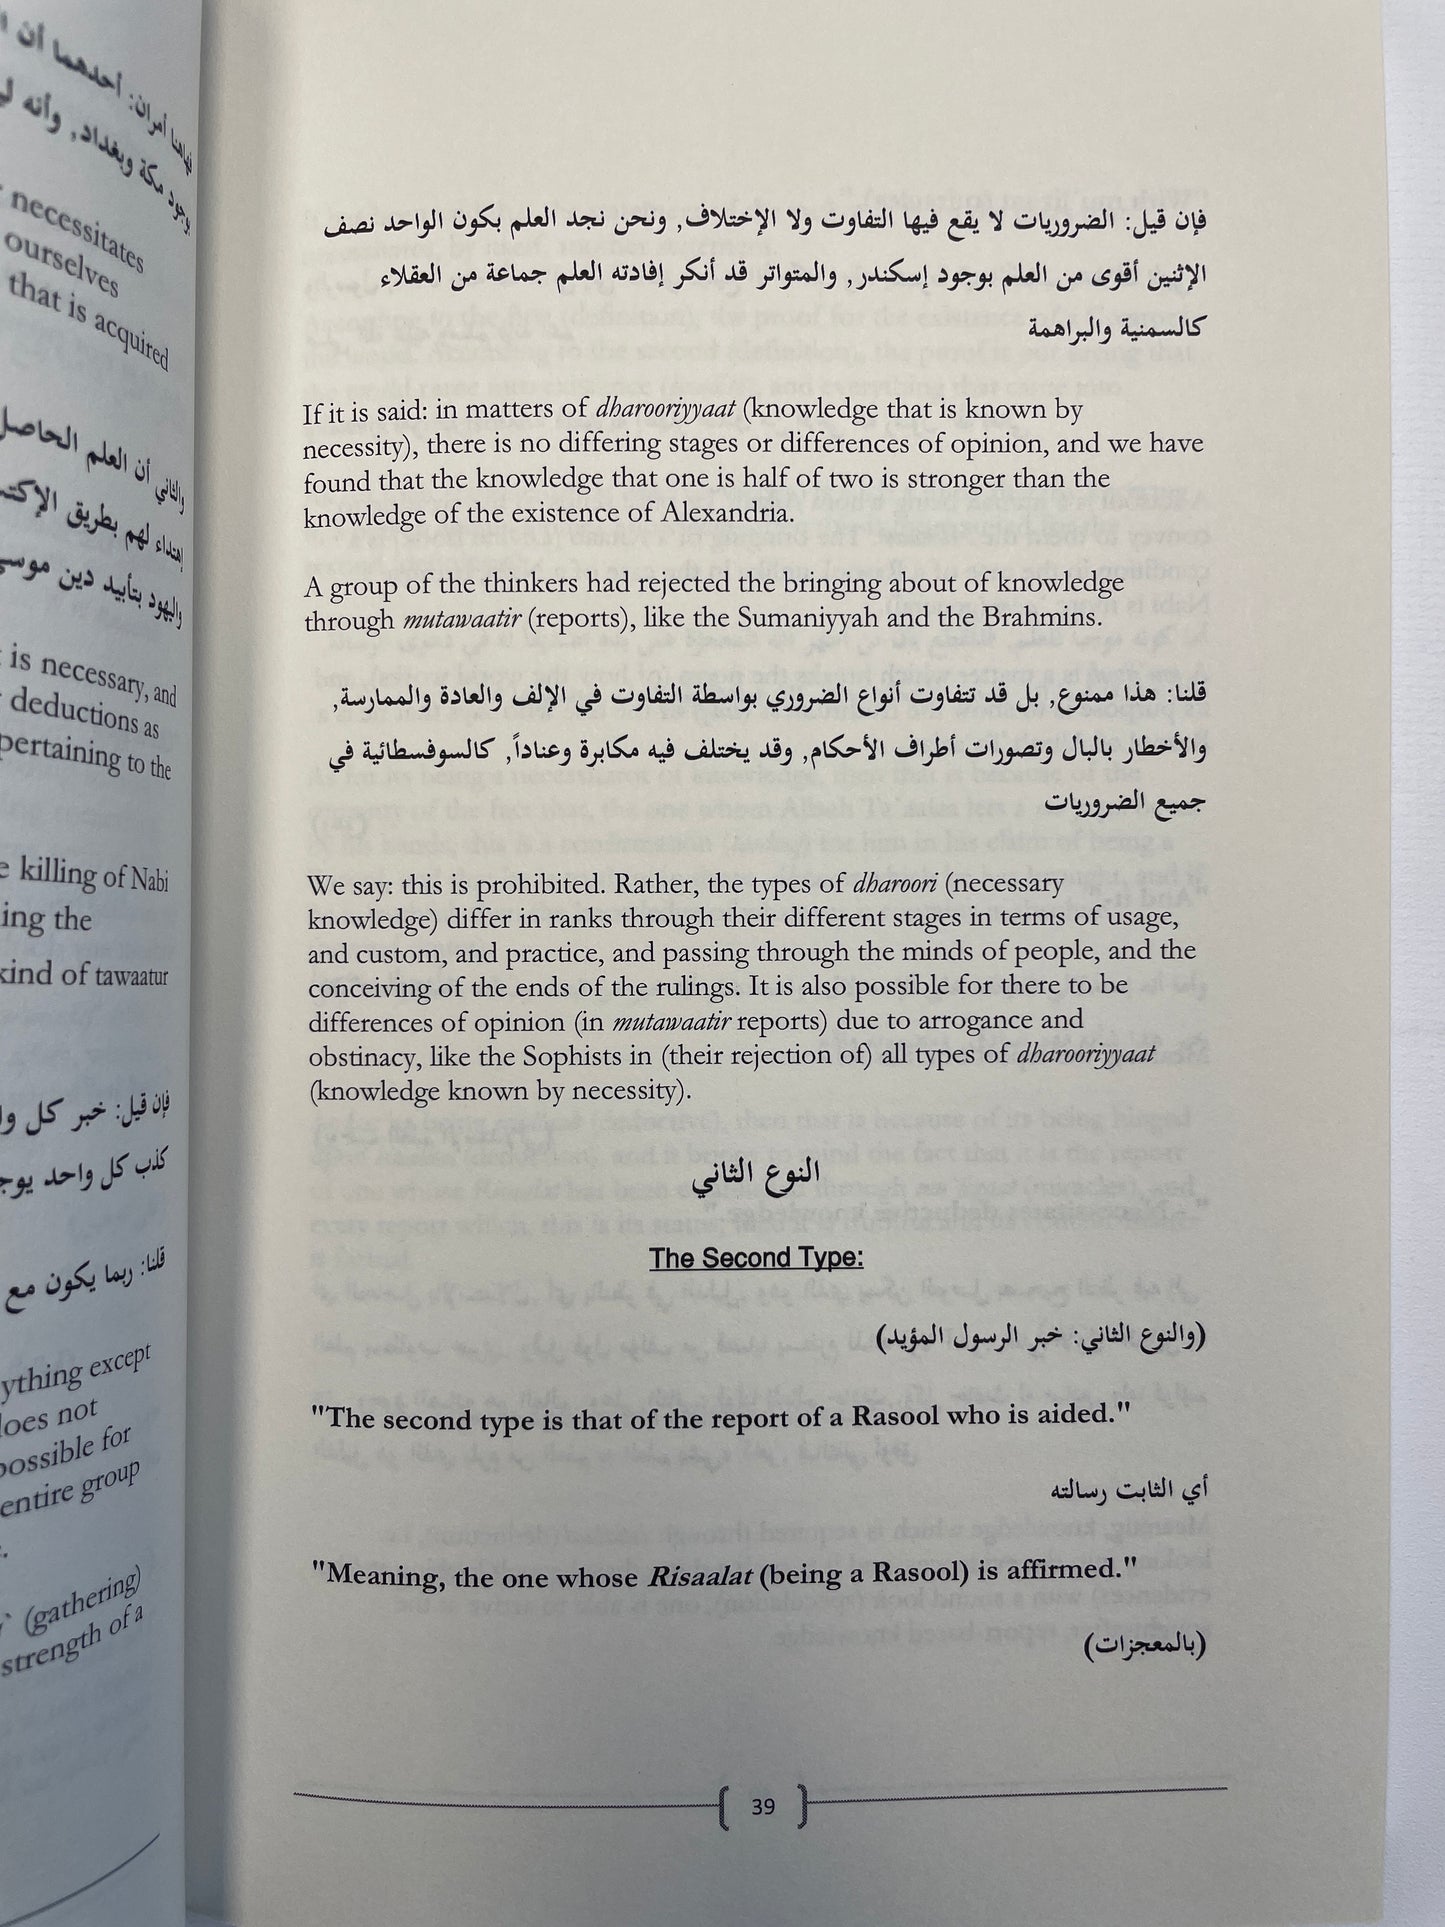 فهاهنا أمران: أحدهما أن
وجود مكة وبغداد, وأنه
necessitates
ourselves
that is acquired
والثاني أن العلم الحاصل
إهتداء لهم بطريق
واليهود بتأييد دين موسى
is necessary, and
deductions as
pertaining to the
killing of Nabi
ing the
kind of tawaatur
فإن قيل: خبر كل
كذب كل واحد
قلنا: ربما يكون مع
ything except
does not
possible for
entire group
(gathering)
strength of a
فإن قيل: الضروريات لا يقع فيها التفاوت ولا الإختلاف, ونحن نجد العلم بكون الواحد نصف
الإثنين أقوى من العلم بوجود إسكندر, والمتواتر قد أنكر إفادته العلم جماعة من العقلاء
كالسمنية والبراهمة
If it is said: in matters of dharooriyyaat (knowledge that is known by
necessity), there is no differing stages or differences of opinion, and we have
found that the knowledge that one is half of two is stronger than the
knowledge of the existence of Alexandria.
A group of the thinkers had rejected the bringing about of knowledge
through mutawaatir (reports), like the Sumaniyyah and the Brahmins.
قلنا: هذا ممنوع, بل قد تتفاوت أنواع الضروري بواسطة التفاوت في الإلف والعادة والممارسة,
والأخطار بالبال وتصورات أطراف الأحكام, وقد يختلف فيه مكابرة وعناداً, كالسوفسطائية في
جميع الضروريات
We say: this is prohibited. Rather, the types of dharoori (necessary
knowledge) differ in ranks through their different stages in terms of usage,
and custom, and practice, and passing through the minds of people, and the
conceiving of the ends of the rulings. It is also possible for there to be
differences of opinion (in mutawaatir reports) due to arrogance and
obstinacy, like the Sophists in (their rejection of) all types of dharooriyyaat
(knowledge known by necessity).
النوع الثاني
The Second Type:
(والنوع الثاني: خبر الرسول المؤيد)
"The second type is that of the report of a Rasool who is aided."
أي الثابت رسالته
"Meaning, the one whose Risaalat (being a Rasool) is affirmed."
(بالمعجزات)
39